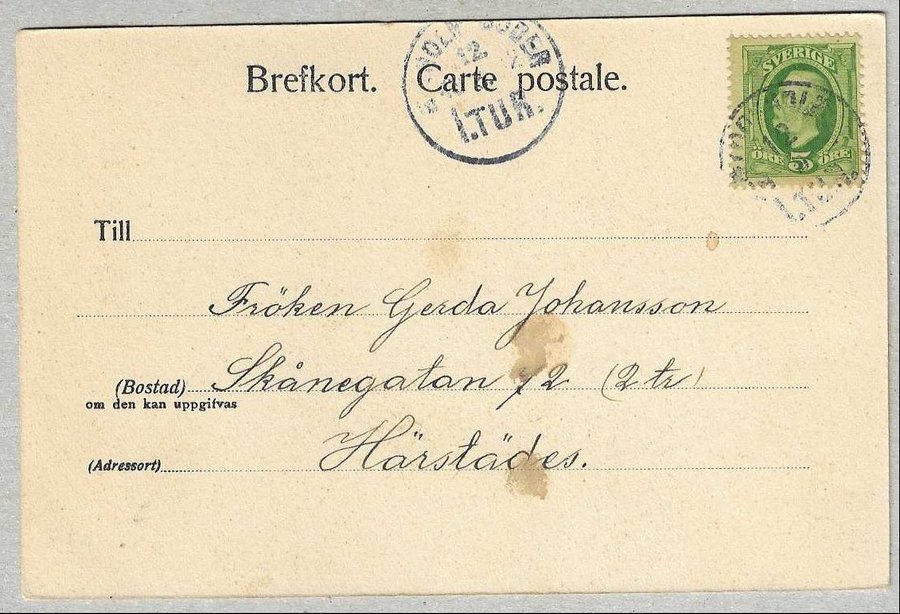 Brefkort. Carte postale.
12
1.TUR.
SVERIGE
ÖRE 5 ÖRE
Till
Fröken Gerda Johansson
(Bostad) Skånegatan 72 (2 tr)
om den kan uppgifvas
(Adressort) Härstädes.